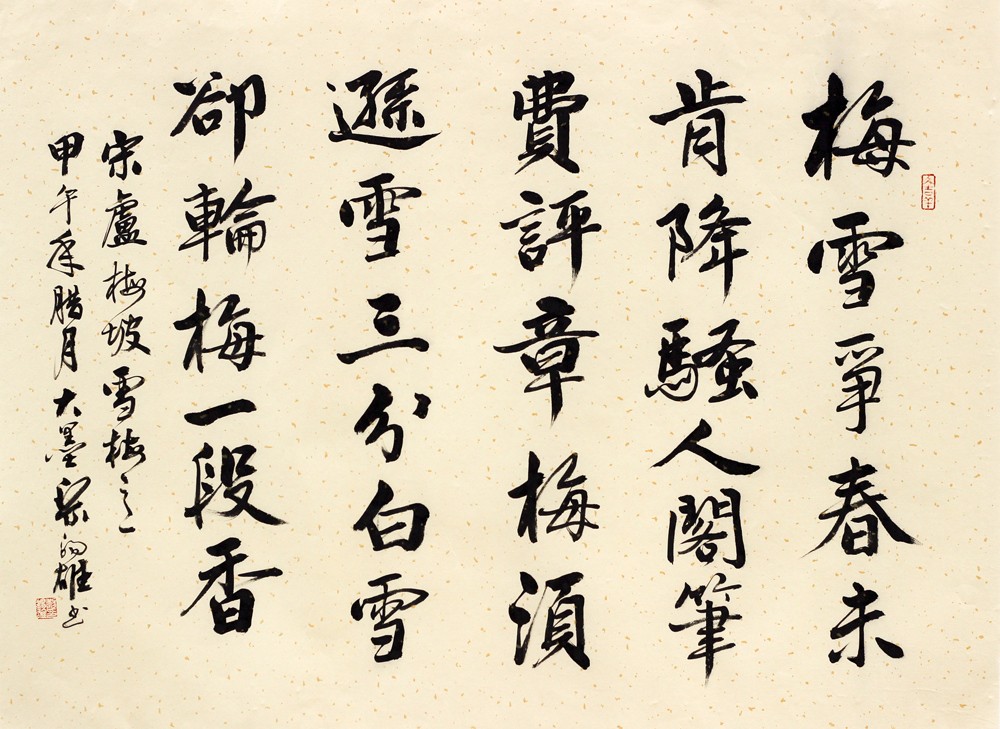 梅雪爭春未
肯降騷人閣筆
費評章梅湏
遜雪三分白雪
卻輪梅一段香
宋盧梅坡雪梅之一
甲午年腊月大墨梁雄书